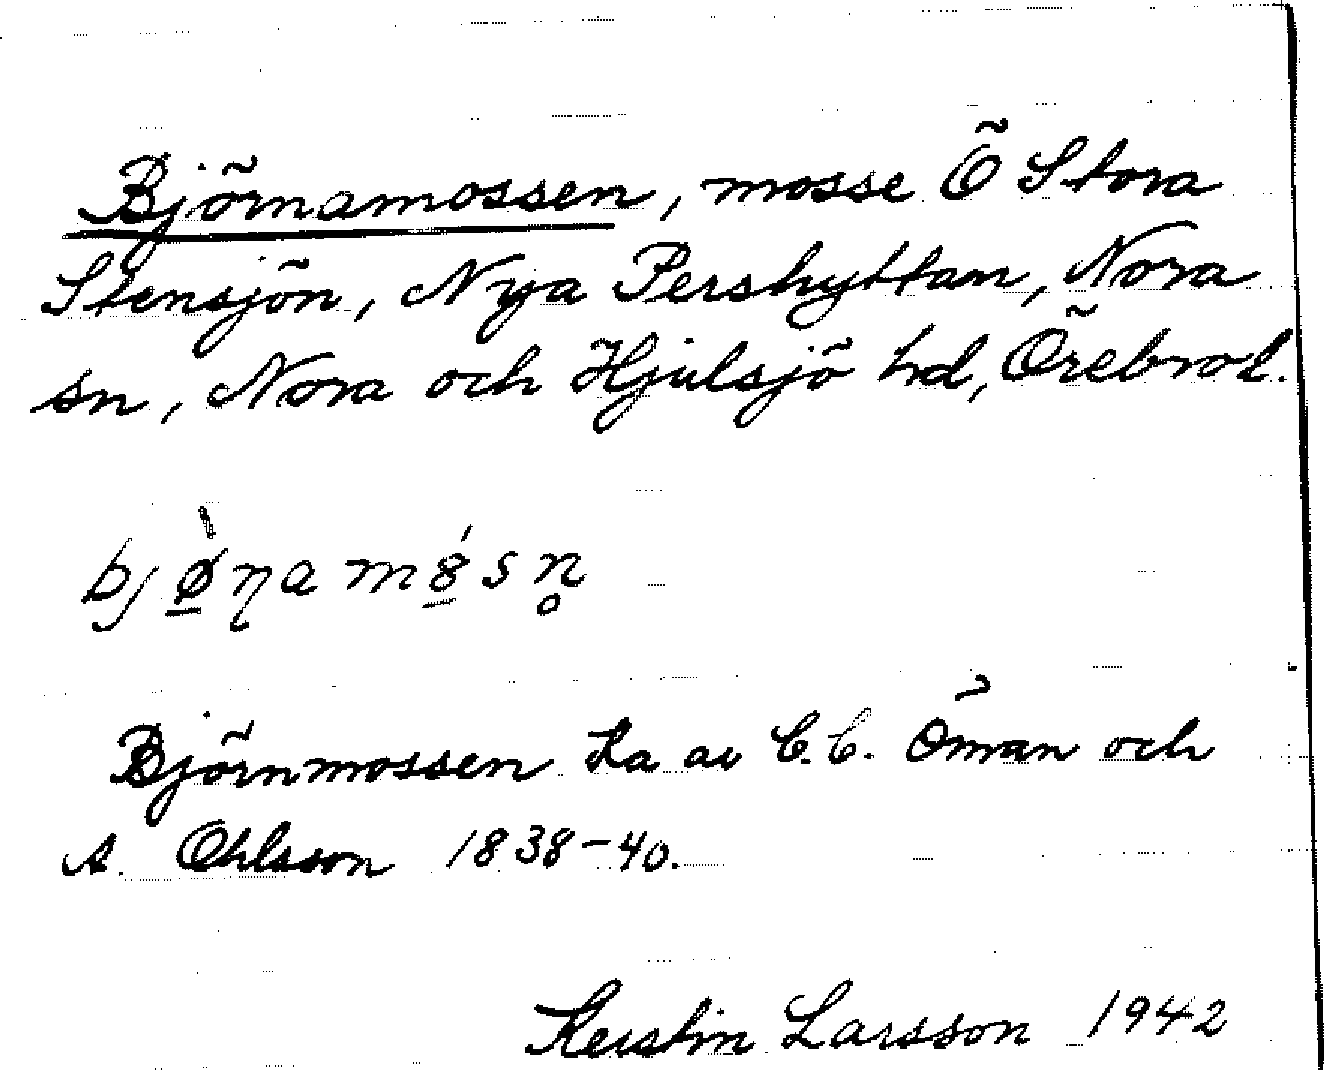 Björnamossen, mosse Ö Stora
Stensjön, Nya Pershyttan, Nora
sn, Nora och Hjulsjö hd, Örebro l.
bjø̀ɳamȣ́sn̥
Björnmossen ka av C.C. Öman och
A. Ohlsson 1838-40.
Kerstin Larsson 1942